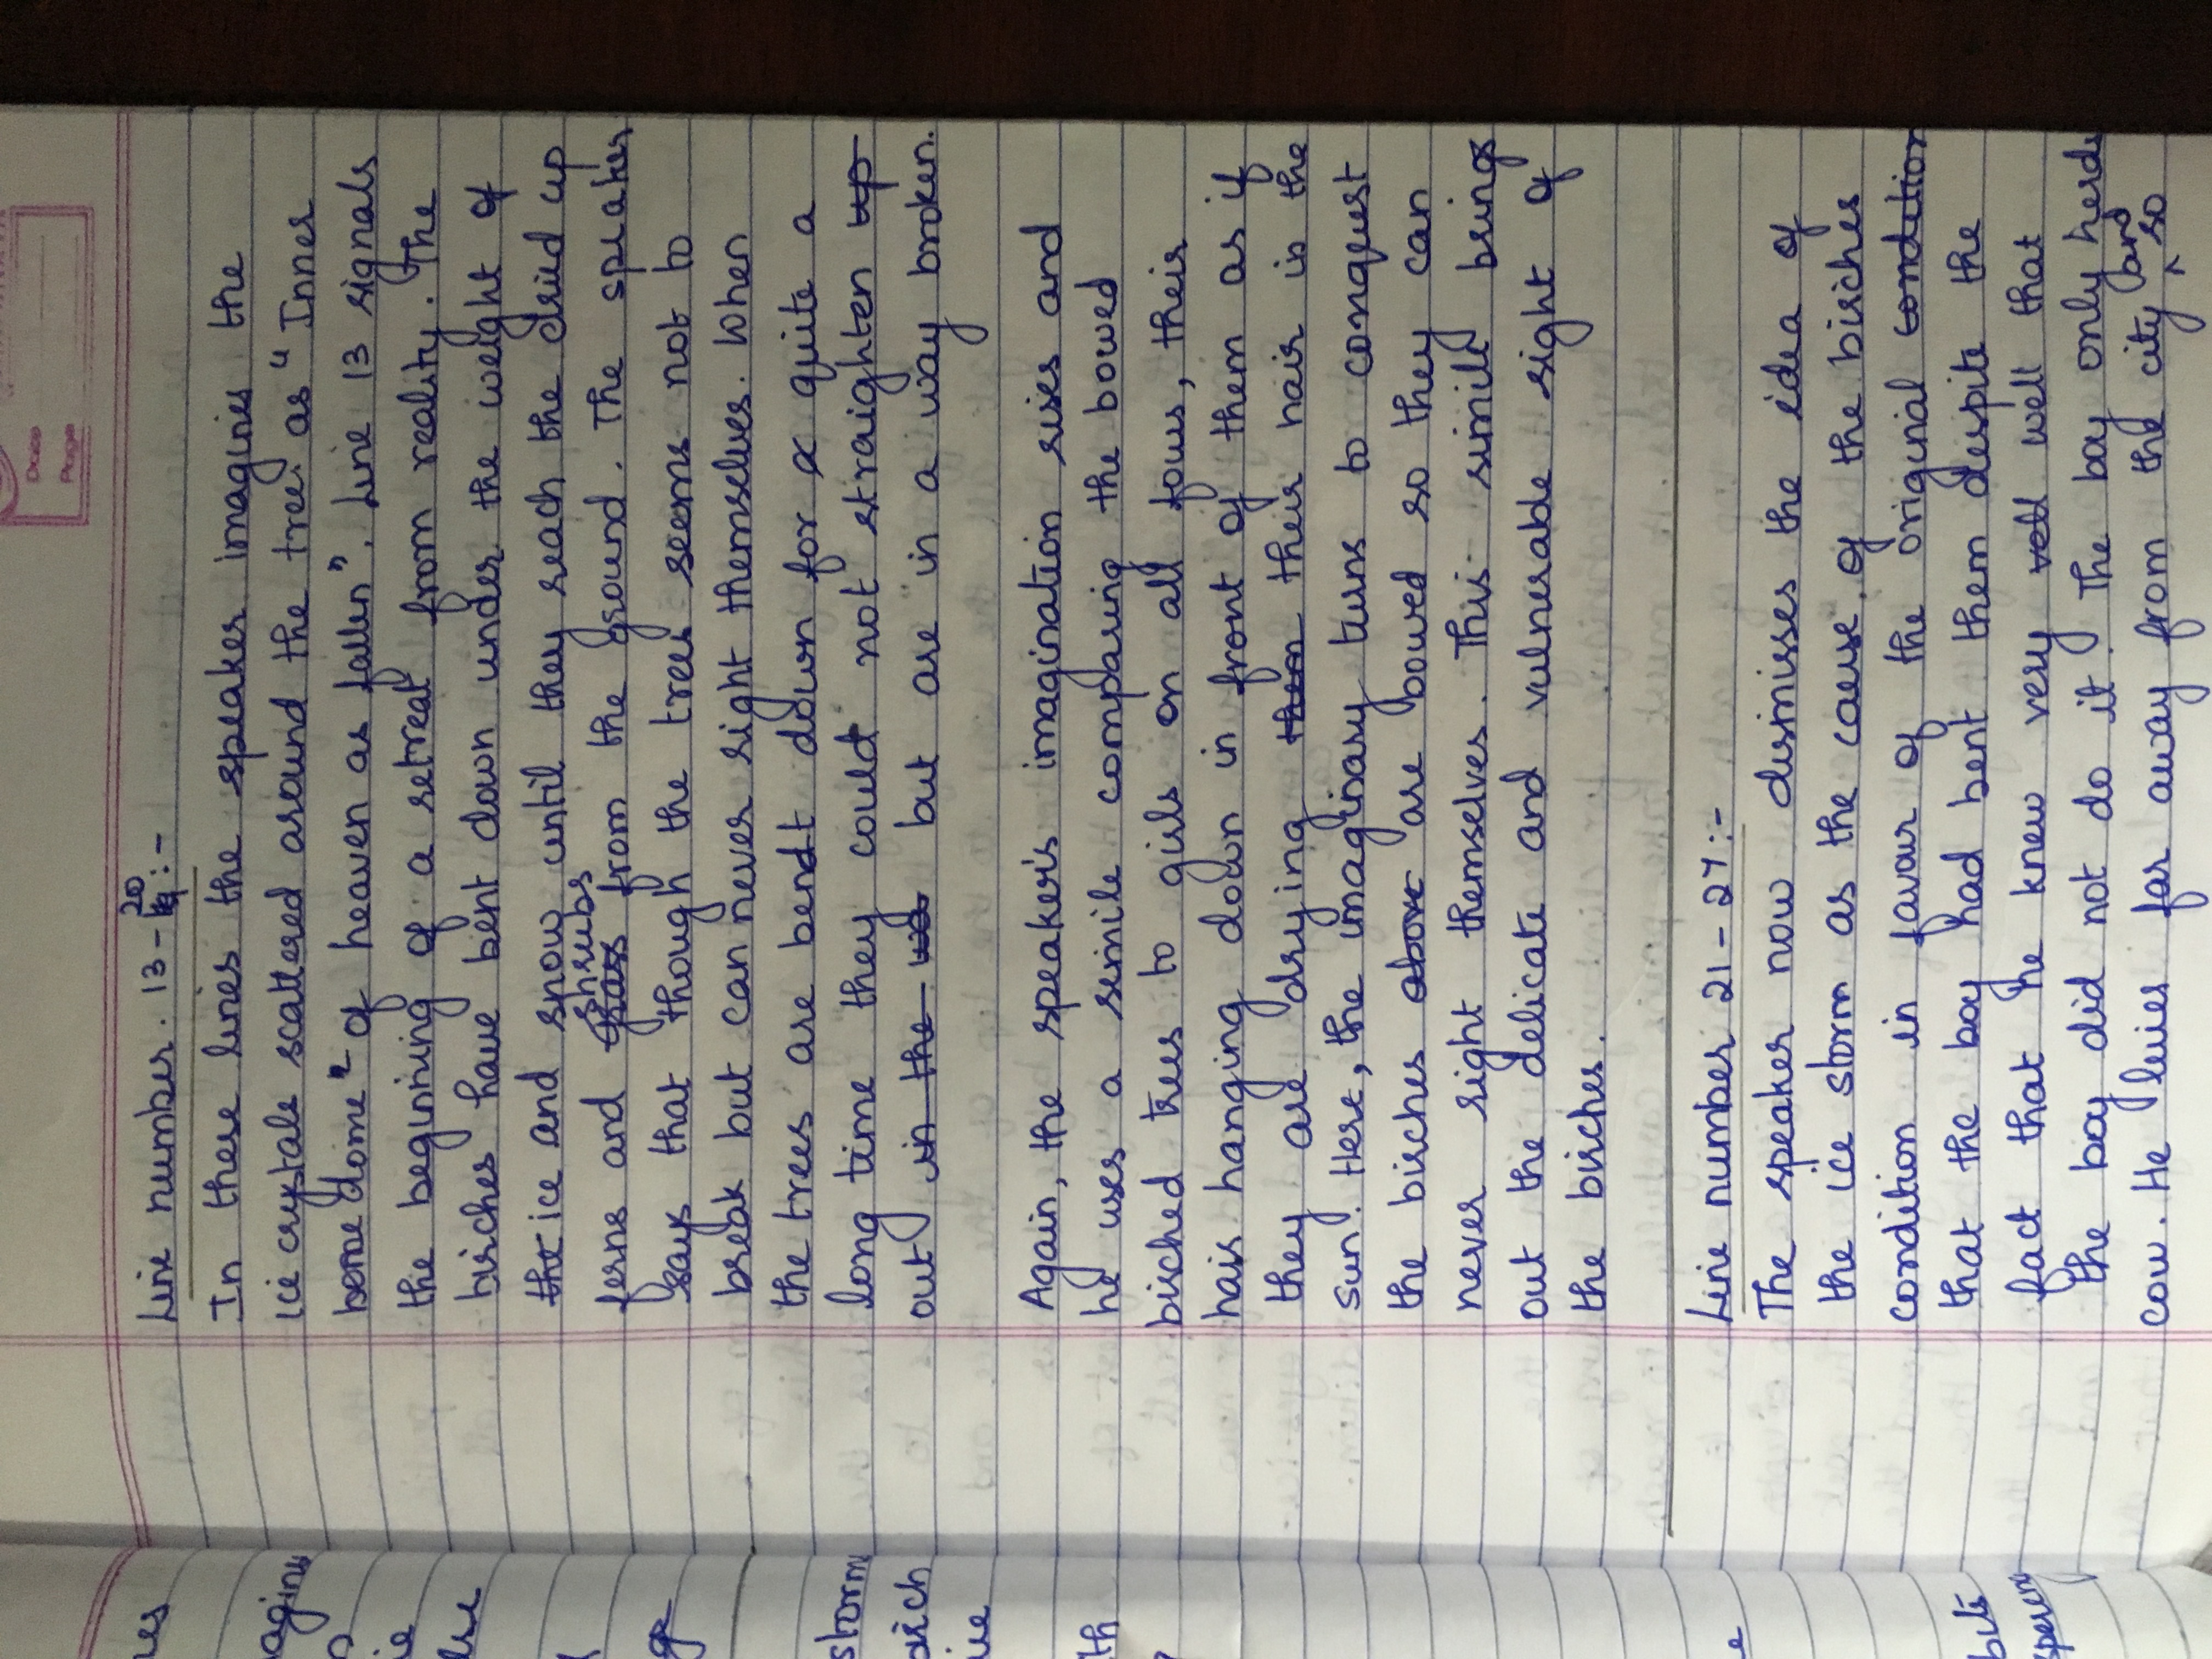 Date
Page
Line number. 13 - 20 :-
In these lines the speaker imagines the
ice crystals scattered around the trees as " Inner
dome" of heaven as fallen". Line 13 signals
the beginning of a retreat from reality. The
birches have bent down under the weight of
the ice and snow until they reach the dried up
ferns and grass shrubs from the ground. The speaker
says that though the trees seems not to
break but can never right themselves. When
the trees are bendt down for a quite a
long time they could not straighten up
out in the wa but are in a way broken.
Again, the speaker's imagination rises and
he uses a simile comparing the bowed
birched trees to girls on all fours, their
hair hanging down in front of them as if
they are drying them their hair in the
sun. Here, the imaginary turns to conquest
the birches above are bowed so they can
never right themselves. This simile brings
out the delicate and vulnerable sight of
the birches.
Line number 21 - 27 :-
The speaker now dismisses the idea of
the ice storm as the cause of the birches
condition in favour of the original condition
that the boy had bent them despite the
fact that he knew very vell well that
the boy did not do it. The boy only herds
cow. He lives far away from the city and so
storm
th